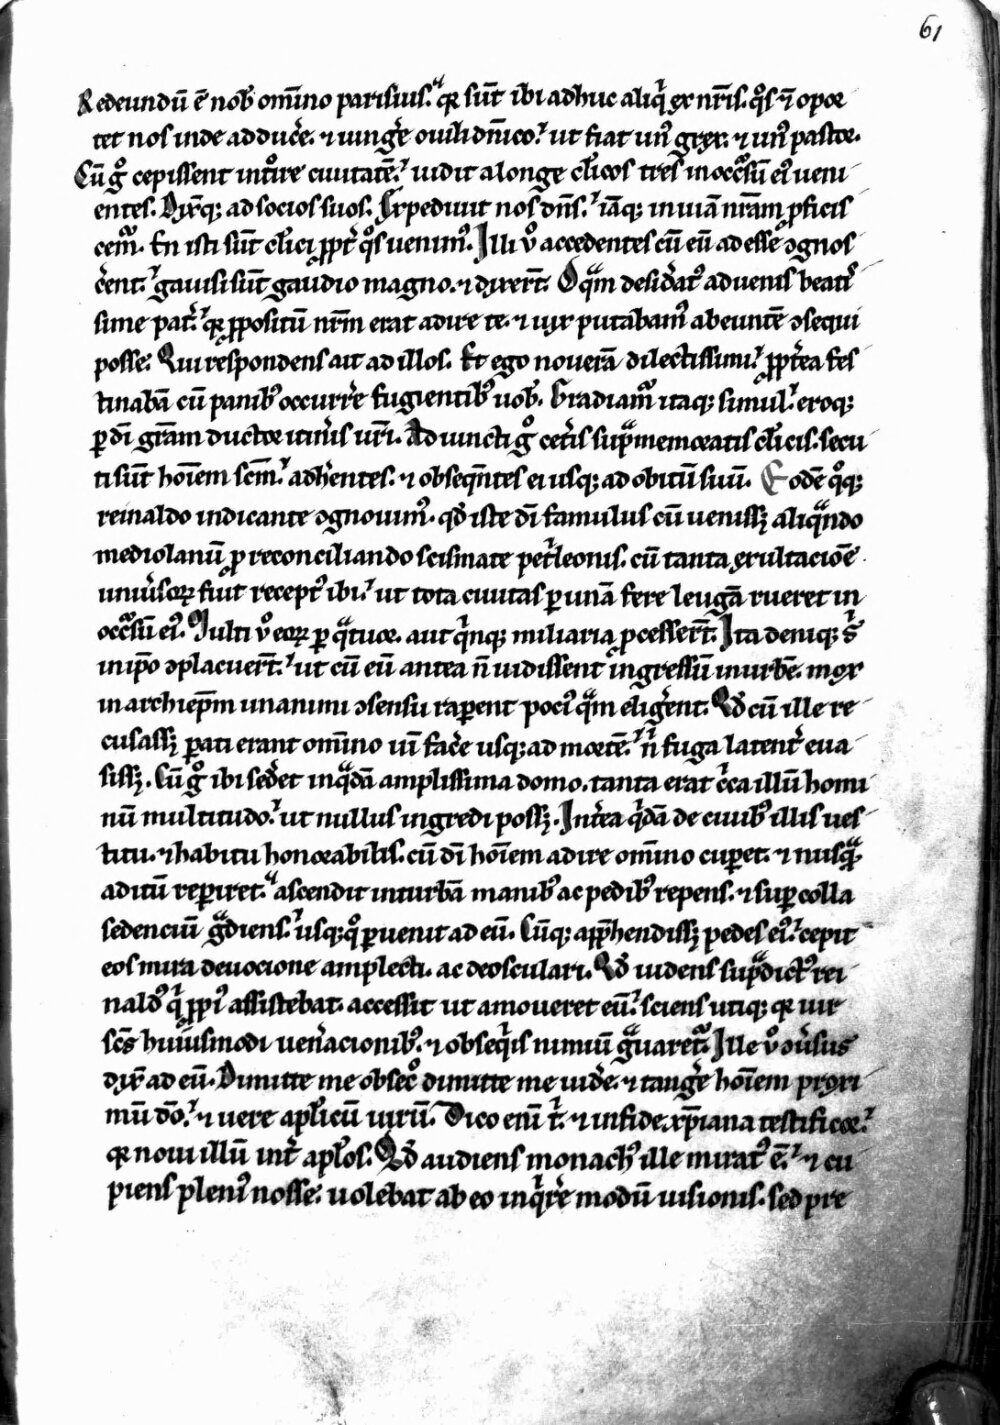 61
Redeundū ē nob̄ om̄ino parisius. qr̄ sūt ibi adhuc aliqⁱ ex nr̄is. qͦs ⁊ opor
tet nos inde adducͤe. ⁊ iungͤe ouili dn̄ico. ut fiat unꝰ grex. ⁊ unꝰ pastor.
Cū gͦ cepissent intͦire ciuitatē. uidit a longe cl̓icos tres in occͬsū eiꝰ ueni
entes. Dixitqꝫ ad socios suos. Expediuit nos dn̄s. iāqꝫ in uiā nr̄am ꝓficis
cemͬ. En isti sūt cl̓ici ꝓpt̓ qͦs uenimꝰ. Illi uͦ accedentes cū eū adesse ꝯgnos
c̓ent. gauisi sūt gaudio magno. ⁊ dixer̄t. O qͣm desid̓atꝰ aduenis beatis
sime pat̓. qr̄ ꝓpositū nr̄m erat adire te. ⁊ uix putabamꝰ abeuntē ꝯsequi
posse. Qui respondens ait ad illos. Et ego nouerā dilectissimi. ꝓpt̓ea fes
tinabā cū panibꝰ occurr̓e fugientibꝰ uob̄. Gradiamͬ itaqꝫ simul. eroqꝫ
ꝑ dī gr̄am ductor itin̓is ur̄i. Adiuncti gͦ cet̓is supͣmemoratis cl̓icis. secu
ti sūt hōīem scm̄. adh̓entes. ⁊ obseqn̄tes ei usqꝫ ad obitū suū. Eodē qͦqꝫ
reinaldo indicante ꝯgnouimꝰ. qd̄ iste dī famulus cū uenissꝫ aliqͣndo
mediolanū ꝓ reconciliando scismate pet̓leonis. cū tanta exultacione
uniu̓soꝝ fuit receptꝰ ibi. ut tota ciuitas ꝑ unā fere leugā rueret in
occͬsū eiꝰ. Multi uͦ eoꝝ ꝑ qͣtuor. aut qⁱnqꝫ miliaria ꝓcesser̄t. Ita deniqꝫ s̓
in ip̄o ꝯplacuer̄t. ut cū eū antea n̄ uidissent ingressū in urbē. mox
in archiep̄m unanimi ꝯsensu raperent pociꝰ qͣm elig̓ent. Qd̄ cū ille re
cusassꝫ parati erant om̄ino uī fac̓e usqꝫ ad mortē. n̄ fuga latent̓ eua
sissꝫ. Cū gͦ ibi sed̓et in qͣdā amplissima domo. tanta erat c̓ca illū homi
nū multitudo. ut nullus ingredi possꝫ. Int̓ea qⁱdā de ciuibꝰ illis ues
titu. ⁊ habitu honorabilis. cū dī hōīem adire om̄ino cuꝑet. ⁊ nusqͣ
aditū reperiret. ascendit in turbā manibꝰ ac pedibꝰ repens. ⁊ suꝑ colla
sedenciū gͣdiens. usqꝫqͦ ꝑuenit ad eū. Cūqꝫ app̄hendissꝫ pedes eiꝰ. cepit
eos mira deuocione amplecti. ac deosculari. Qd̄ uidens supͣdictꝰ rei
naldꝰ qⁱ ꝓpiꝰ assistebat. accessit ut amoueret eū. sciens utiqꝫ qr̄ uir
scs̄ huiusmodi uen̓acionibꝰ. ⁊ obseqⁱis nimiū gͣuaretͬ. Ille uͦ ꝯu̓sus
dix̄ ad eū. Dimitte me obsecͦ dimitte me uid̓e. ⁊ tang̓e hōīem proxi
mū dō. ⁊ uere apl̓icū uirū. Dico enī tⁱ ⁊ in fide xp̄iana testificor.
qr̄ noui illū int̓ apl̓os. Qd̄ audiens monachꝰ ille miratꝰ ē. ⁊ cu
piens pleniꝰ nosse. uolebat ab eo inqⁱr̓e modū uisionis. sed pre